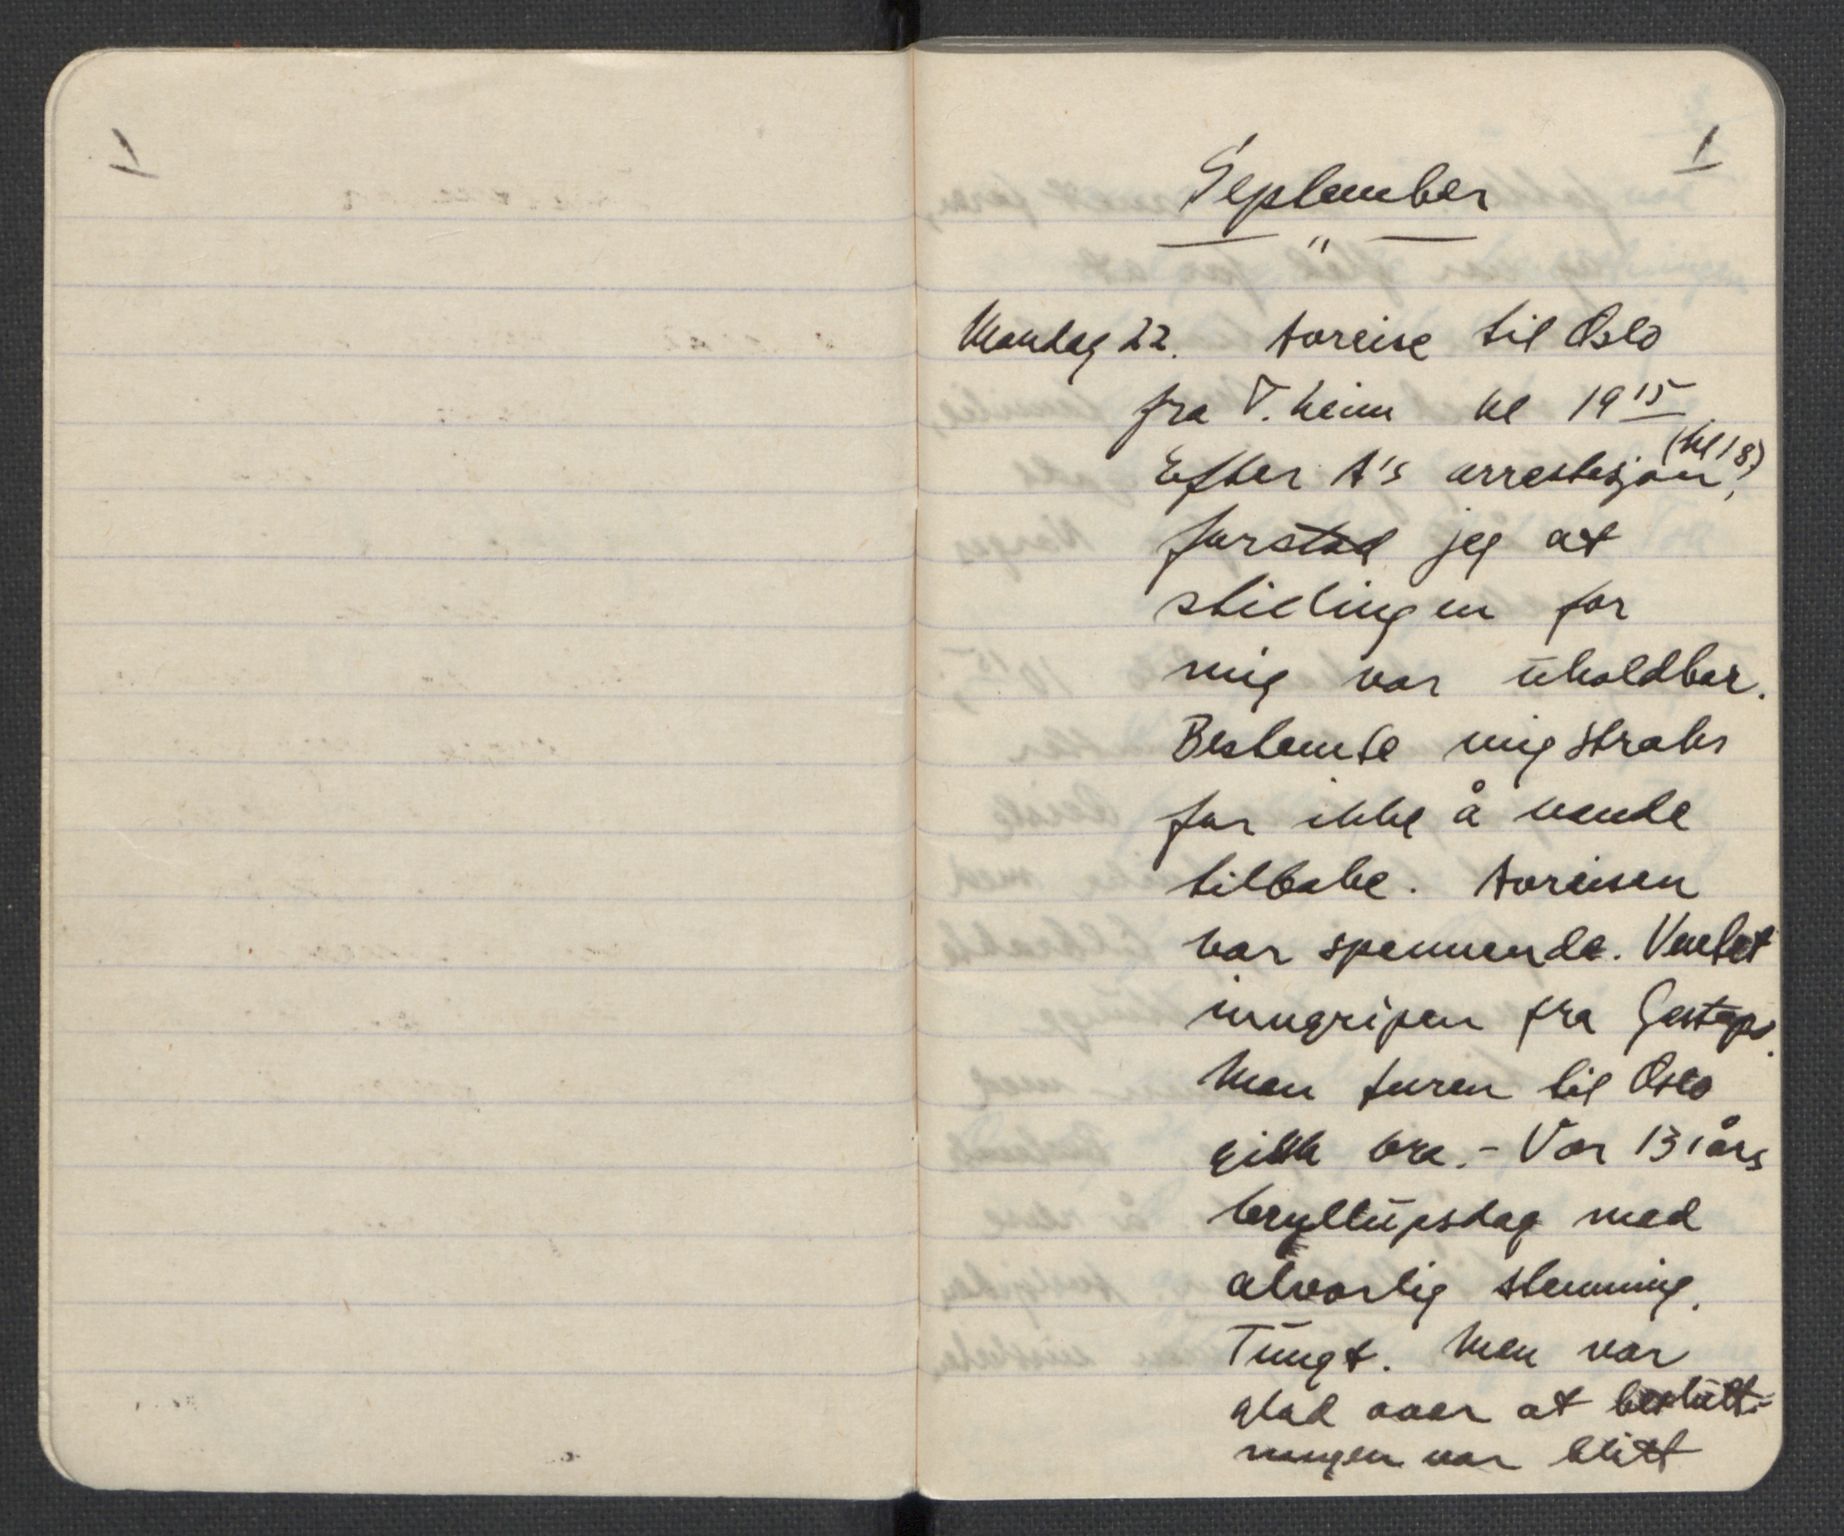 1
1
September
"
Mandag 22. Avreise til Oslo
fra T.heim kl 19 15
(kl 18)
Efter A's arrestasjon,
forstod jeg at
stillingen for
mig var uholdbar.
Bestemte mig straks
for ikke å vende
tilbake. Avreisen
var spennende. Ventet
inngripen fra Gestapo.
Men turen til Oslo
gikk bra. - Vor 13 års
bryllupsdag med
alvorlig stemning.
Tungt. Men var
glad over at beslutt-
ningen var blitt